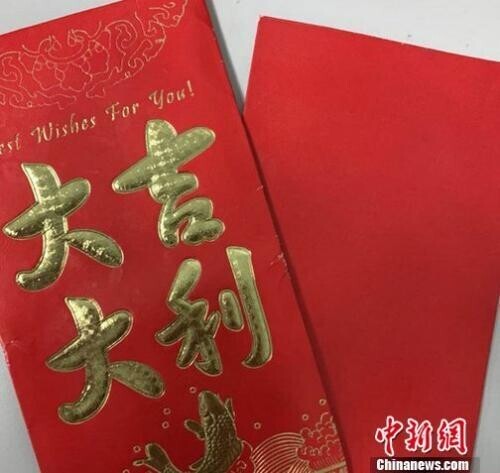 Best Wishes For You!
大吉
大利
中新网
Chinanews.com